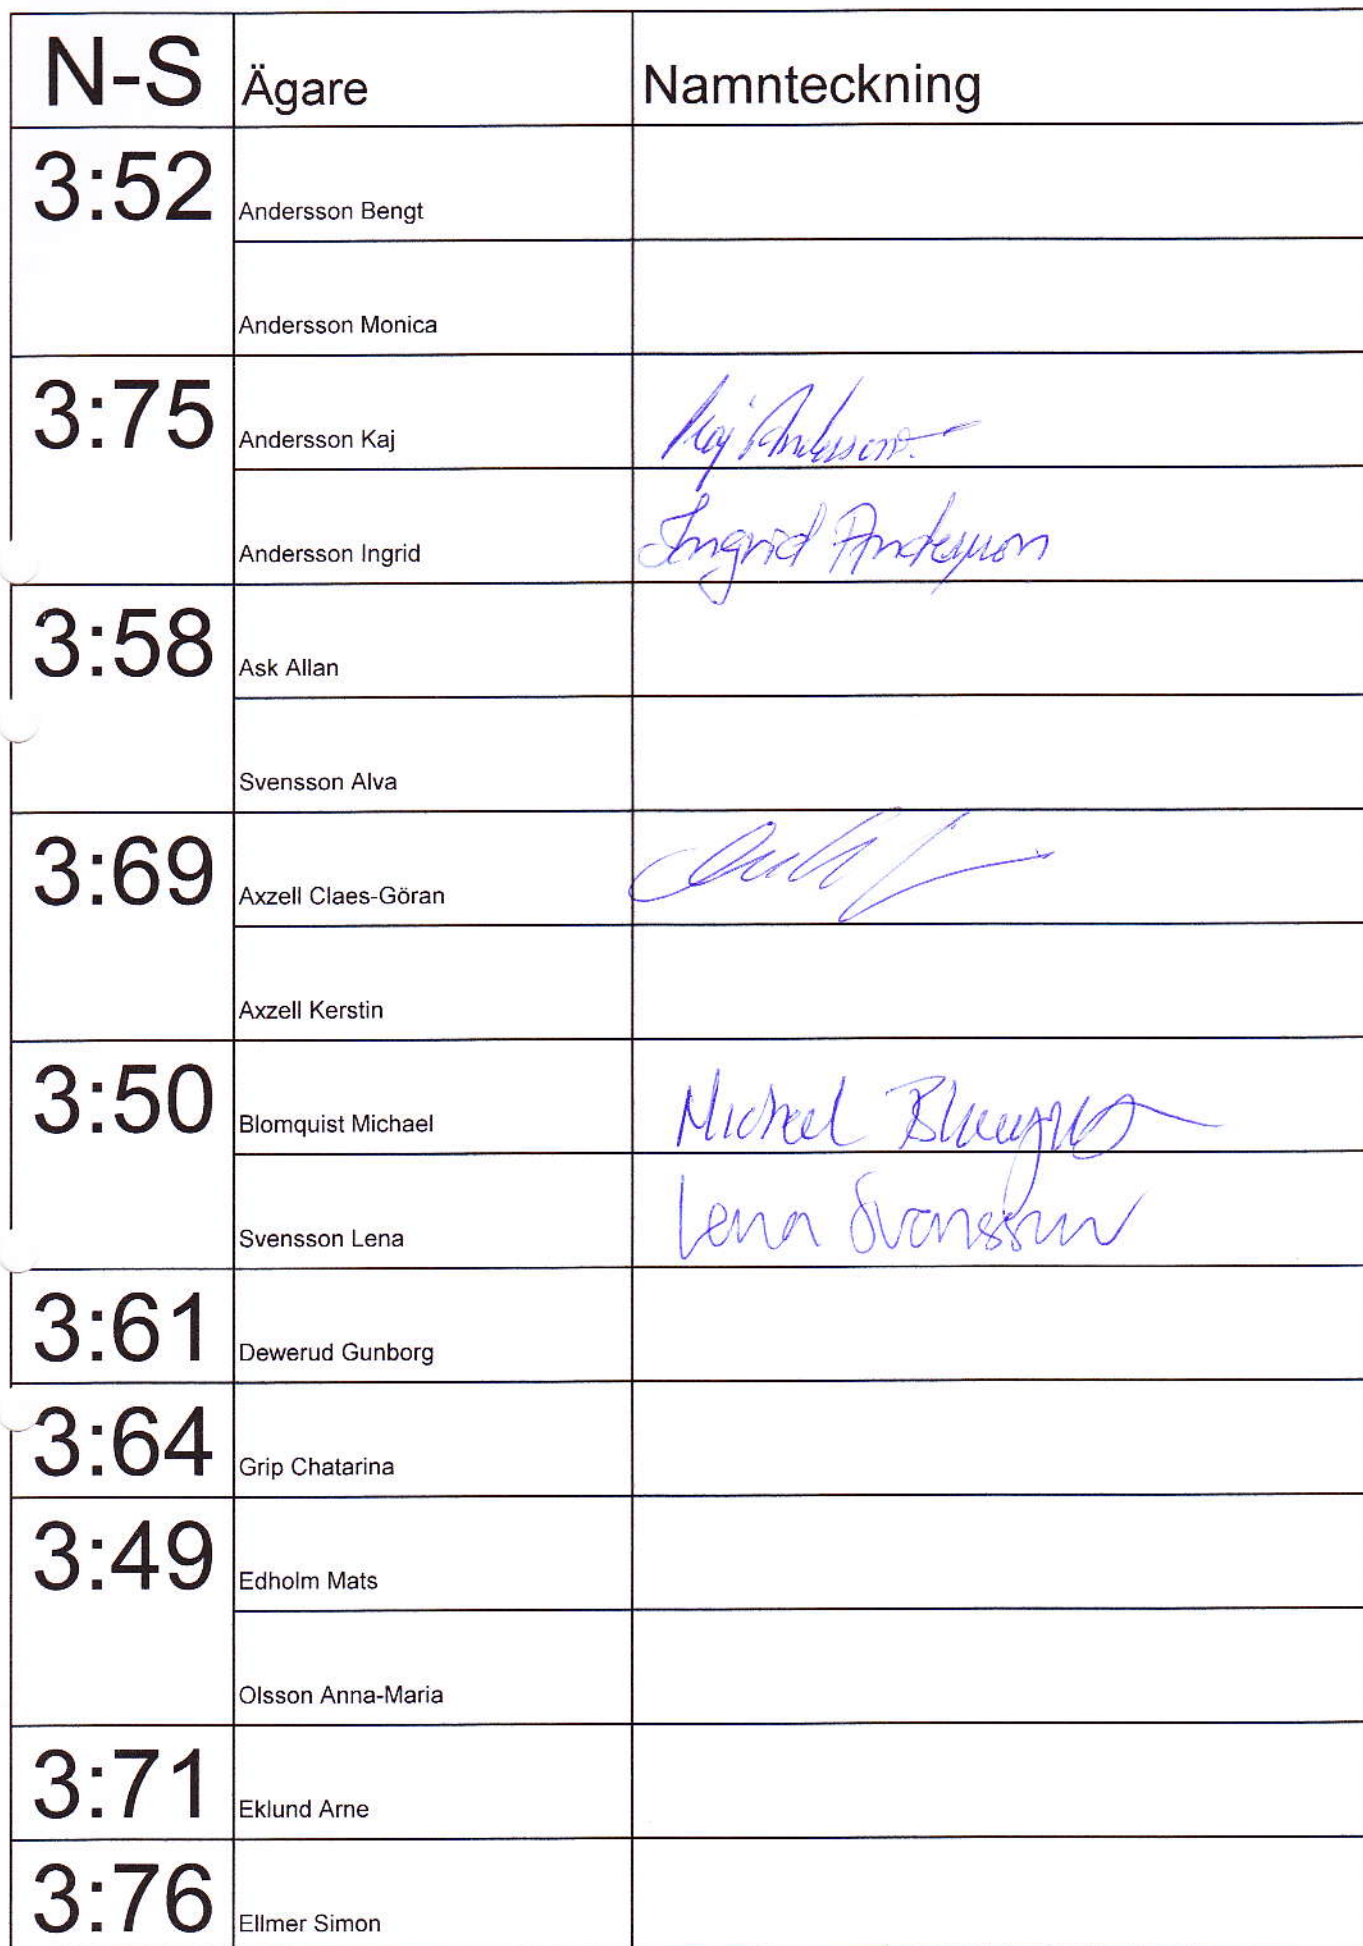 N-S Ägare Namnteckning
3:52 Andersson Bengt
Andersson Monica
3:75 Andersson Kaj Kaj Andersson
Andersson Ingrid Ingrid Andersson
3:58 Ask Allan
Svensson Alva
3:69 Axzell Claes-Göran
Axzell Kerstin
3:50 Blomquist Michael Michael Blomquist
Svensson Lena Lena Svensson
3:61 Dewerud Gunborg
3:64 Grip Chatarina
3:49 Edholm Mats
Olsson Anna-Maria
3:71 Eklund Arne
3:76 Ellmer Simon